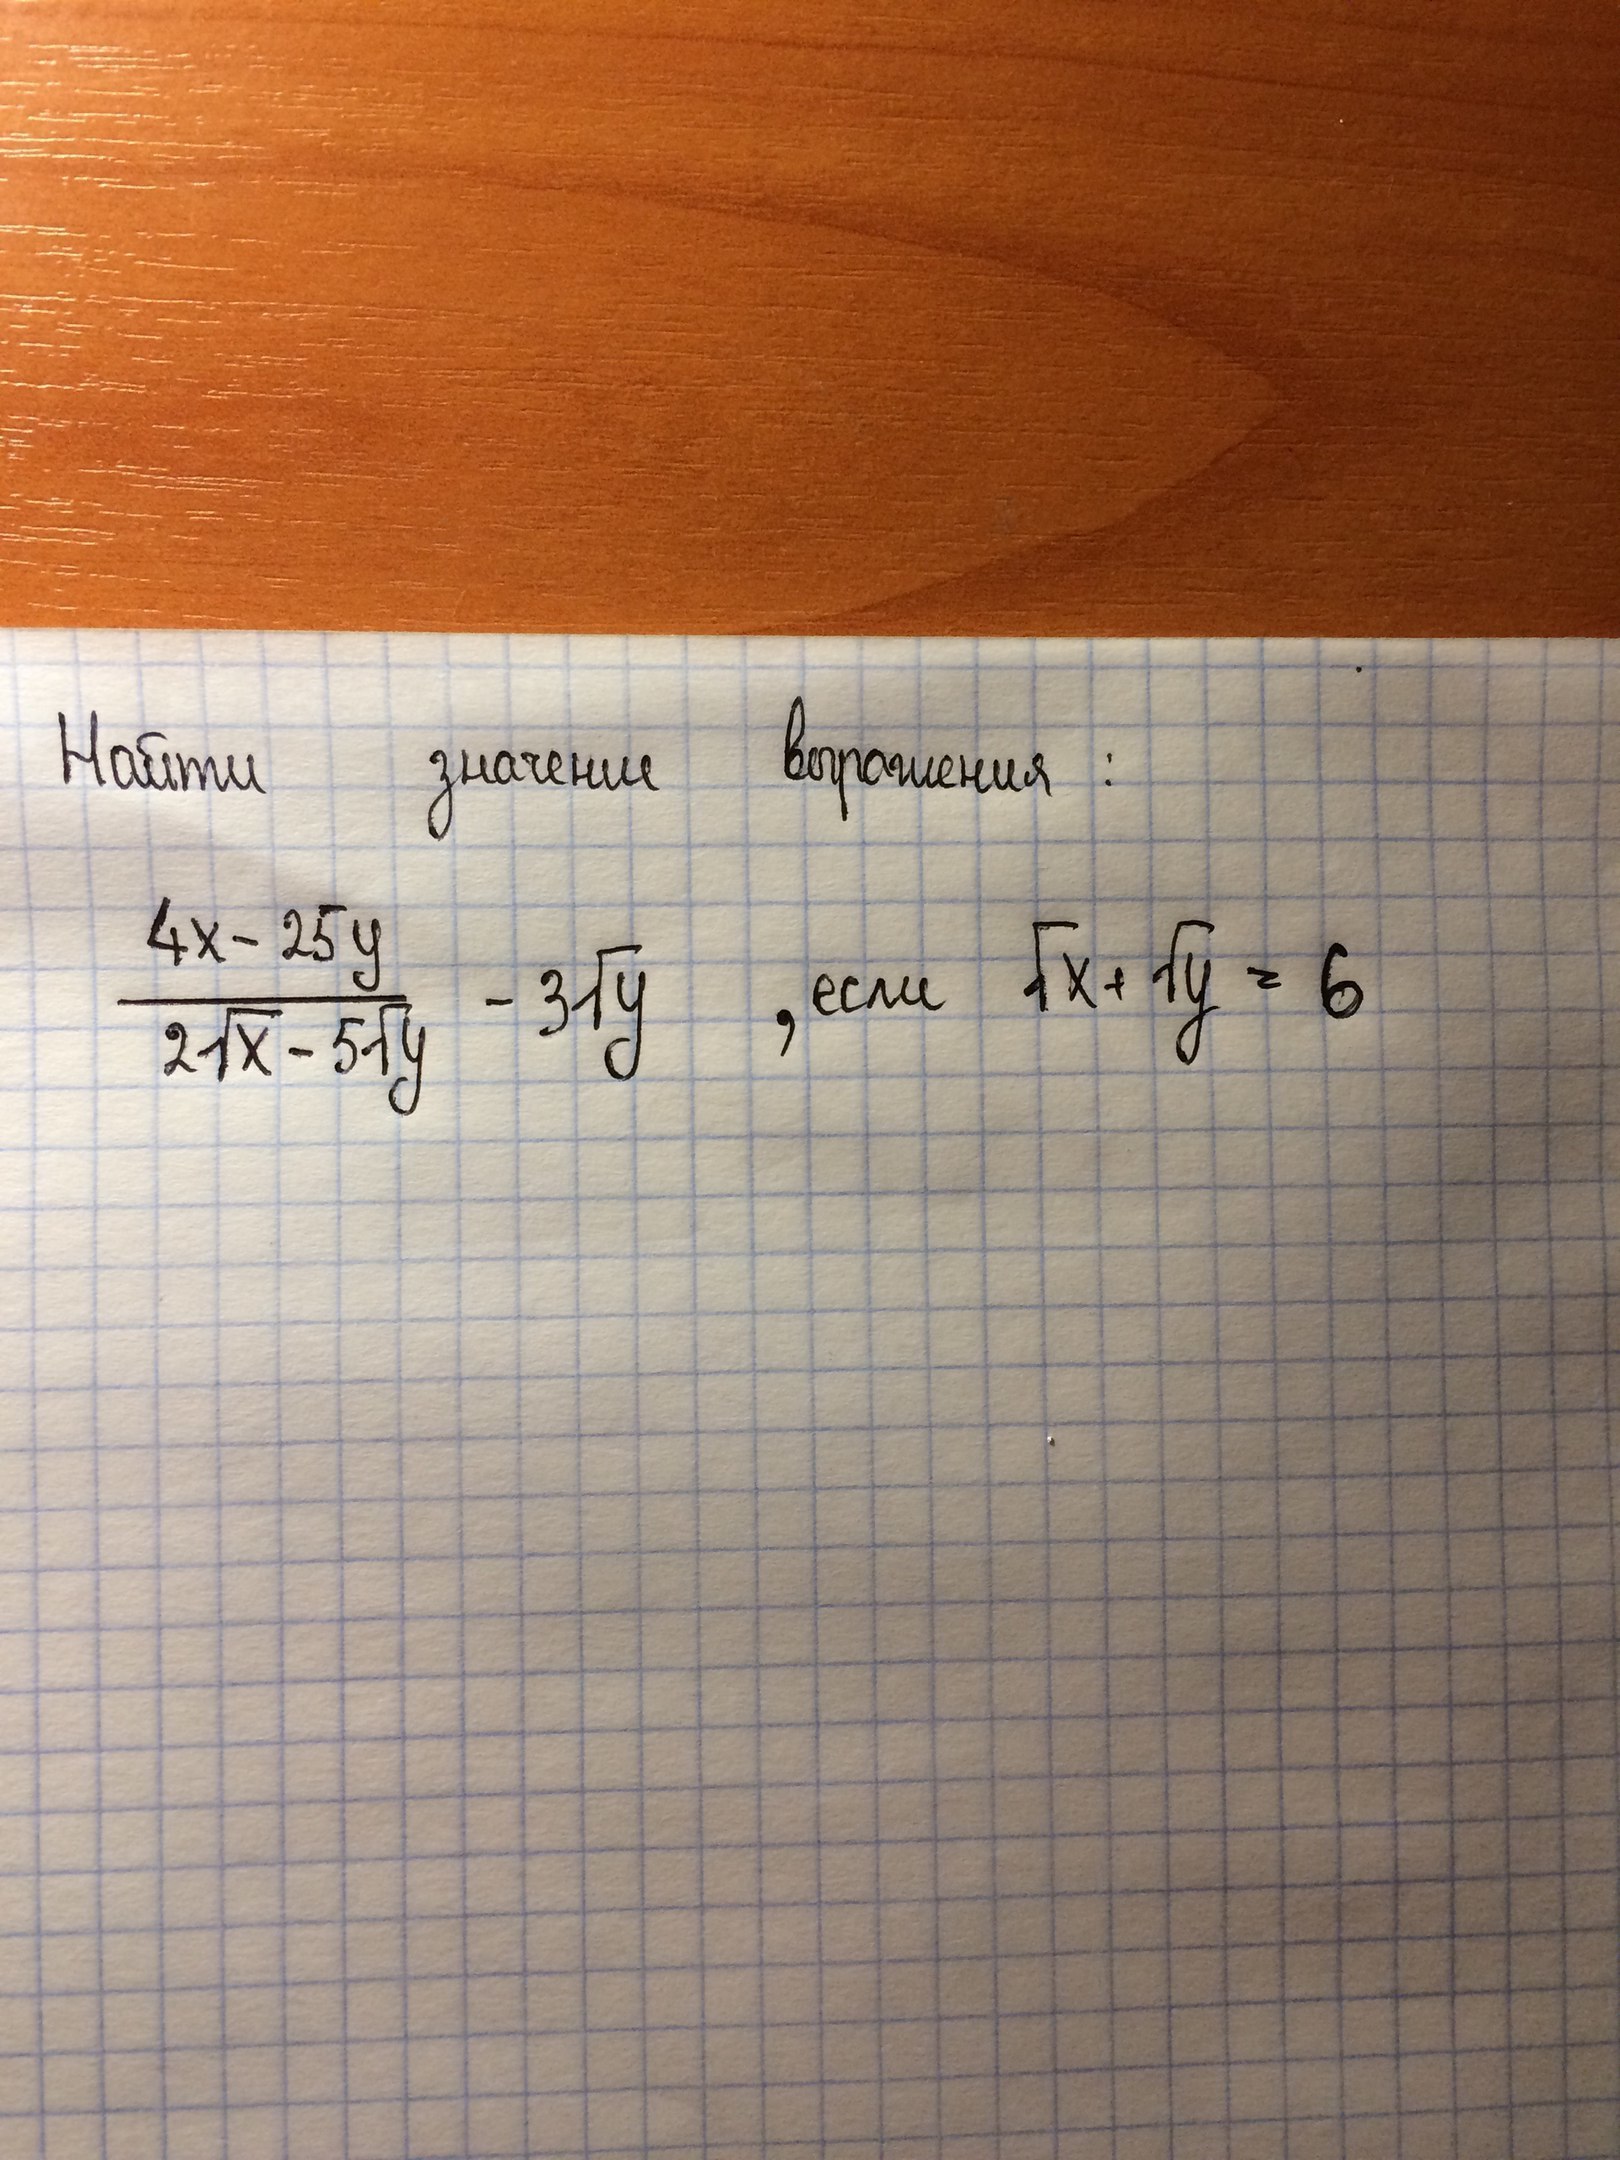 Найти значение выражения:
(4x - 25y)/(2√x - 5√y) - 3√y , если √x + √y = 6